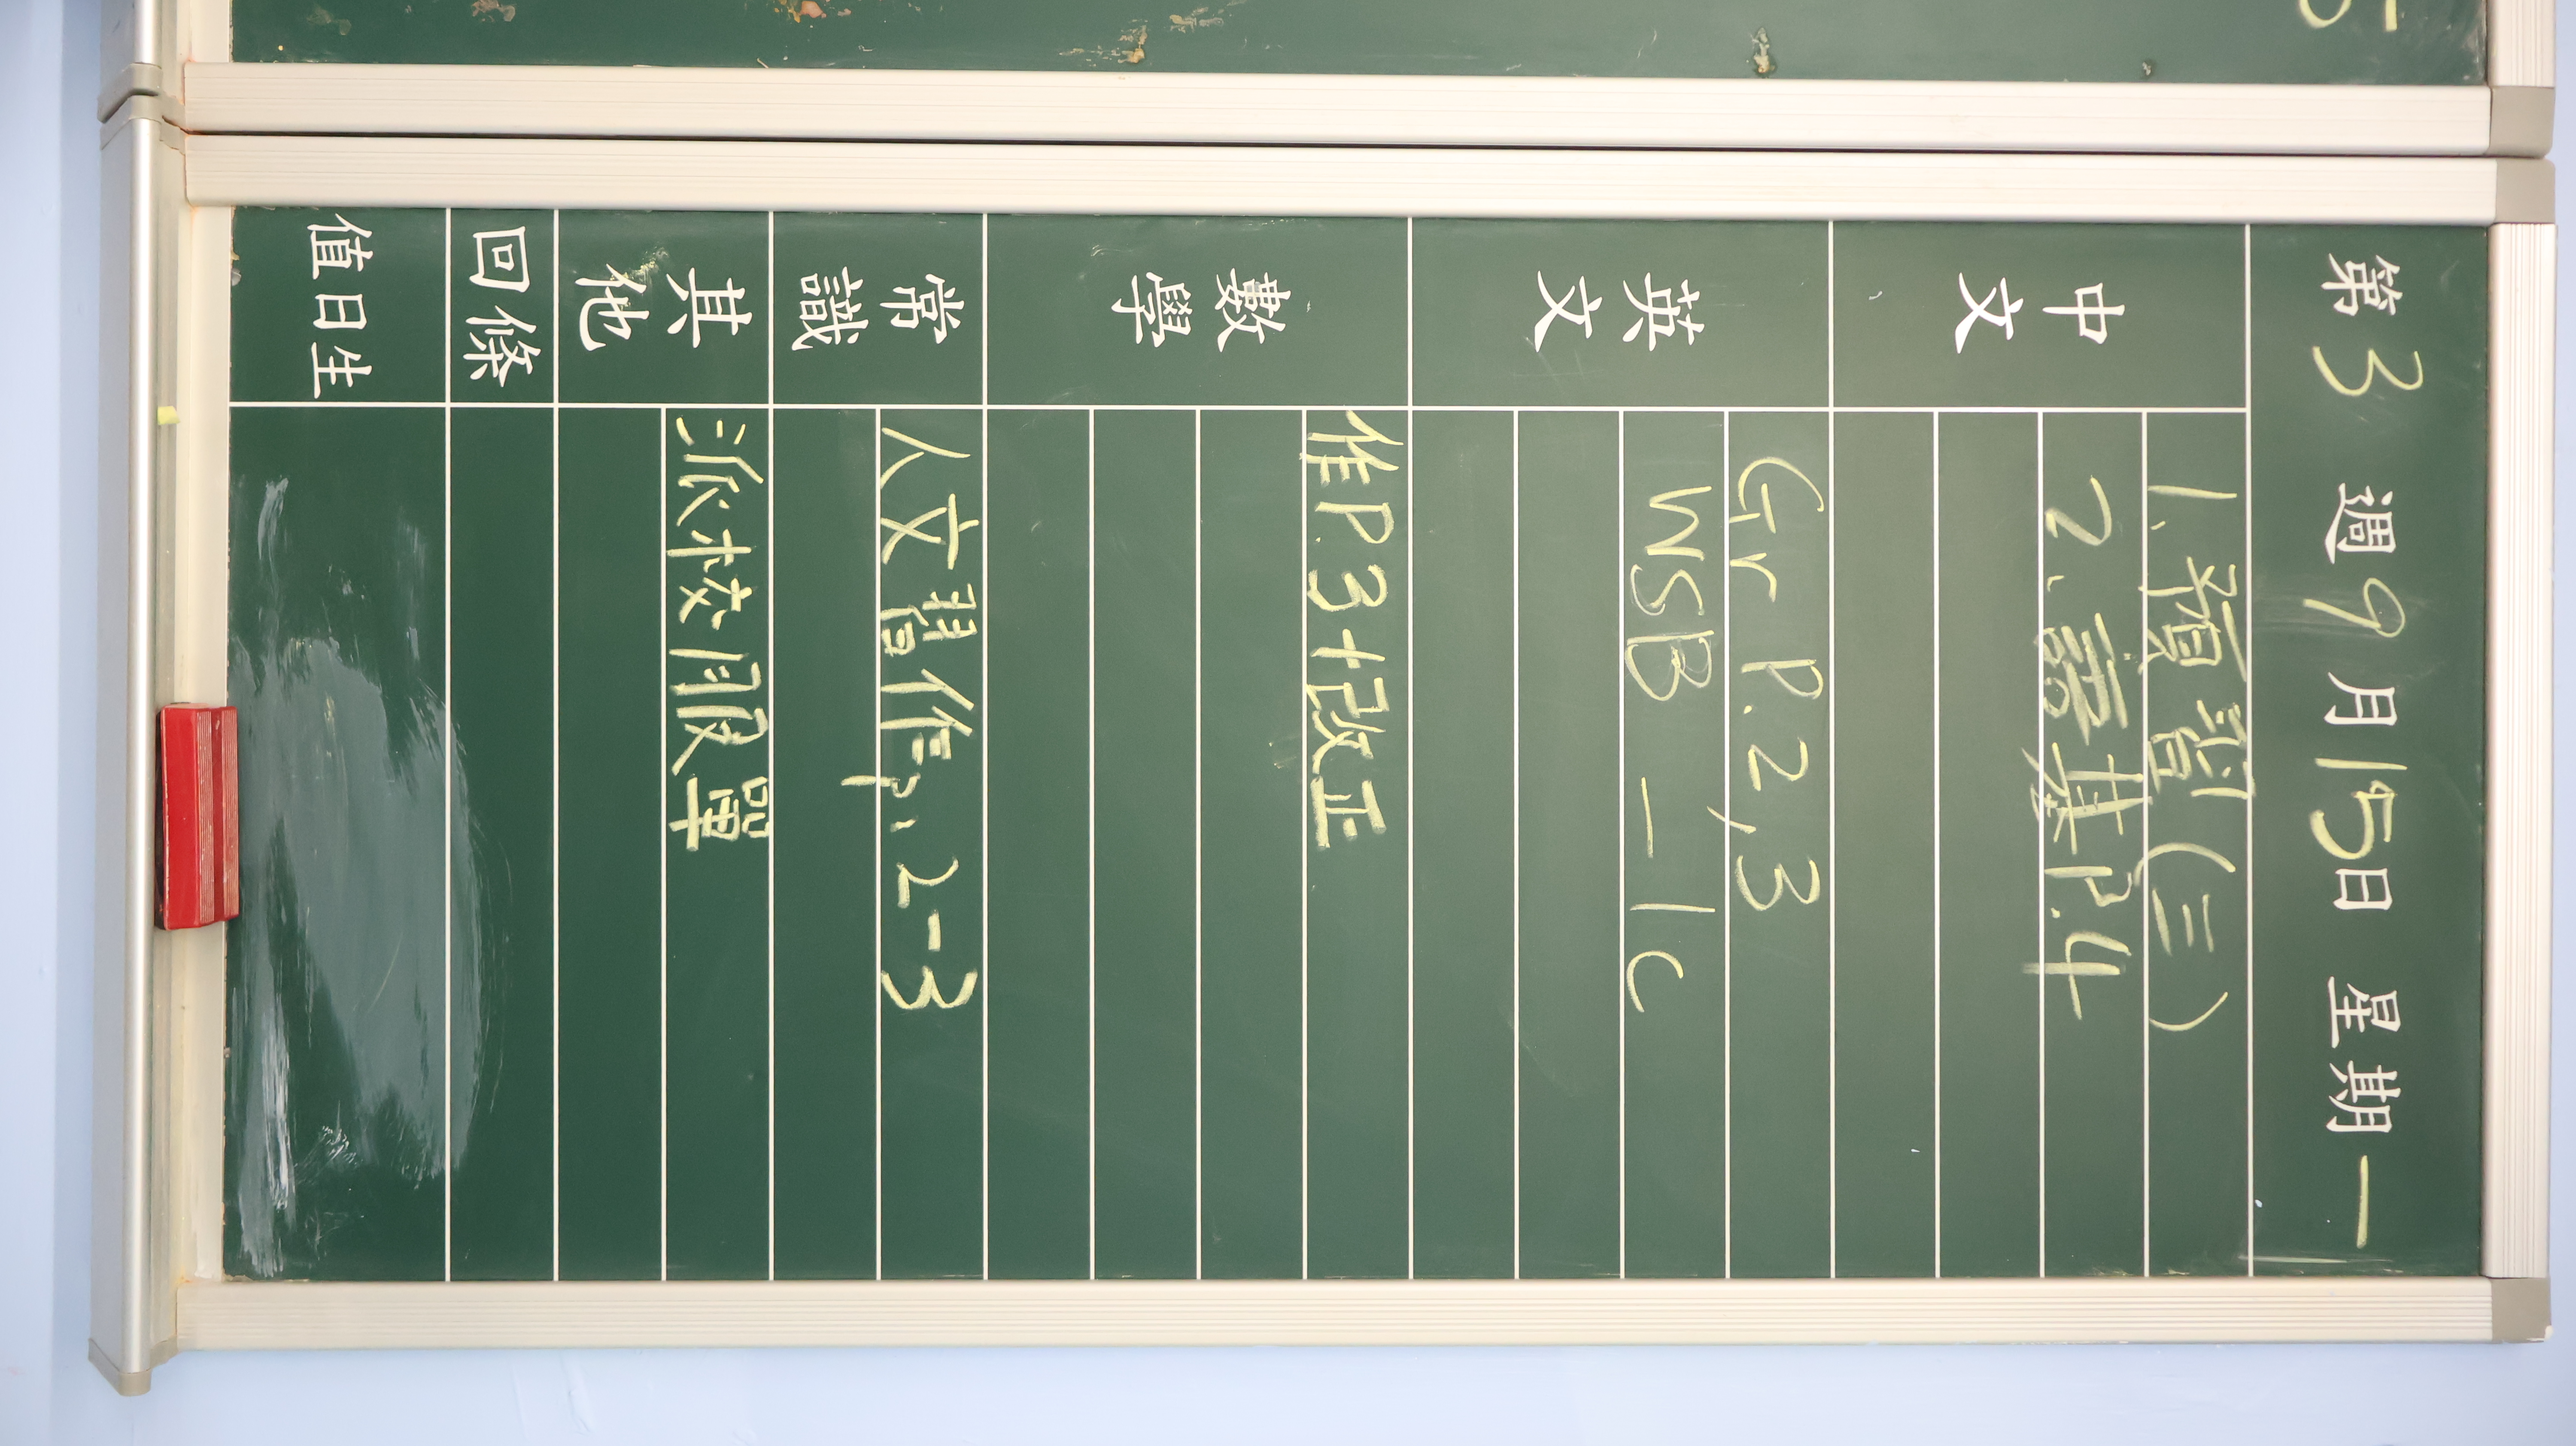 第3週9月15日 星期一
中文
1. 預習(三)
2. 語基P.4
英文
Gr P.2,3
WSB _ 1c
數學
作P.3+改正
常識
人文習作p.2-3
其他
派校服單
回條
值日生